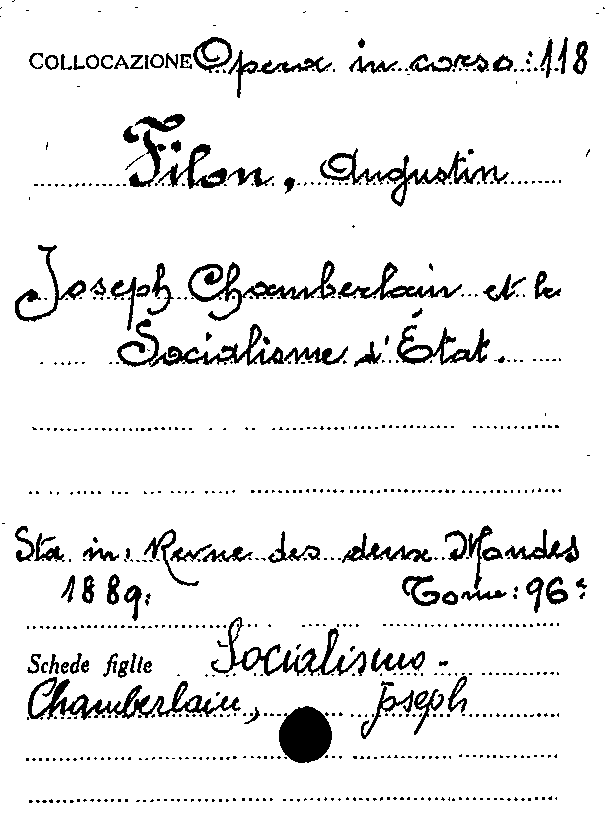 COLLOCAZIONE Opera in corso: 118
Filon, Augustin
Joseph Chamberlain et le
Socialisme d'État.
Sta in: Revue des deux Mondes
1889: Tome: 96e
Schede figlie Socialismo-
Chamberlain, Joseph